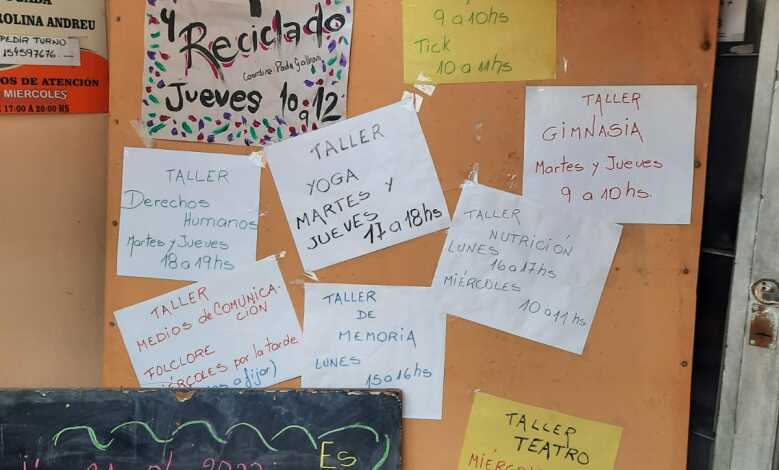 ROLINA ANDREU
PEDIR TURNO
154597676.-
OS DE ATENCIÓN
MIERCOLES
17:00 A 20:00 HS
y
Reciclado
Coordina Paula
Jueves 10 a 12
9 a 10hs
Tick
10 a 11hs
TALLER
GIMNASIA
Martes y Jueves
9 a 10hs.
TALLER
YOGA
MARTES Y
JUEVES
17 a 18hs
TALLER
Derechos
Humanos
Martes y Jueves
18 a 19hs
TALLER
NUTRICIÓN
LUNES
16 a 17hs
MIÉRCOLES
10 a 11hs
TALLER
MEDIOS de COMUNICA-
CIÓN
FOLCLORE
MIÉRCOLES por la tarde
a fijar)
TALLER
DE
MEMORIA
LUNES
15 a 16hs
TALLER
TEATRO
MIÉRCO
Es